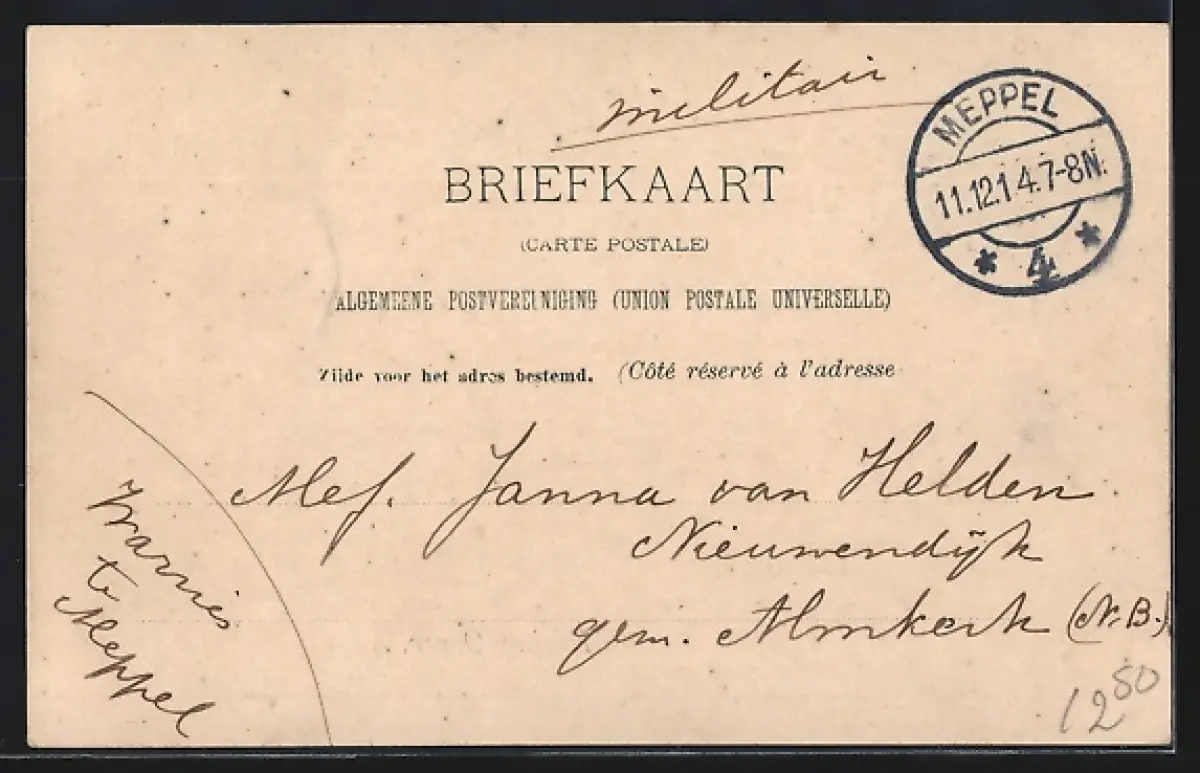 militair
MEPPEL
11.12.14.7-8N.
* 4 *
BRIEFKAART
(CARTE POSTALE)
ALGEMEENE POSTVEREENIGING (UNION POSTALE UNIVERSELLE)
Zijde voor het adres bestemd. (Côté réservé à l'adresse
Mej. Janna van Helden
Nieuwendijk
gem. Almkerk (N.B.)
te
Meppel
12 50